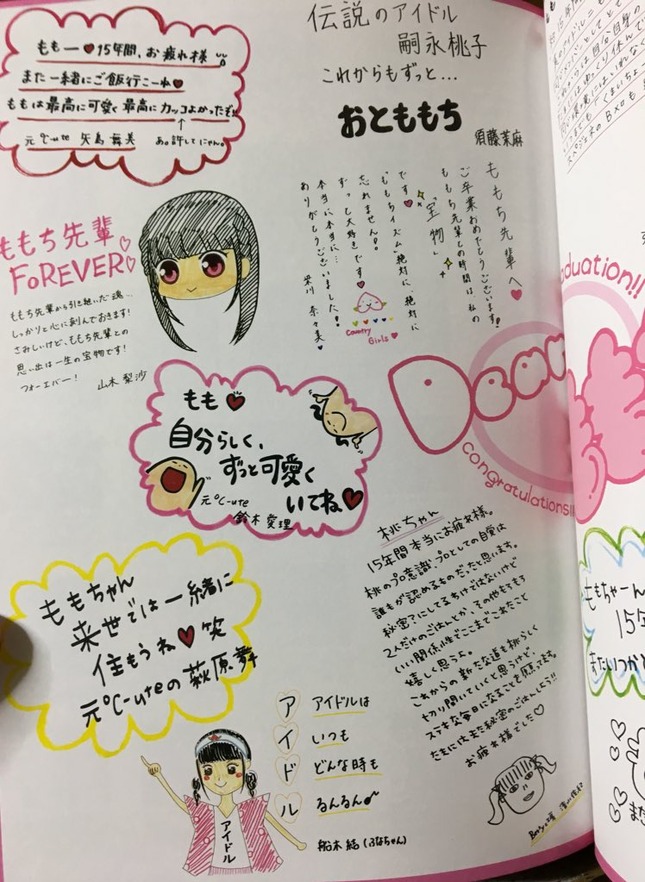 ももー♥15年間、お疲れ様
また一緒にご飯行こーね♥
ももは最高に可愛く最高にカッコよかったぞ!!
↑
あ。許してにゃん。
元℃-ute 矢島舞美
伝説のアイドル
嗣永桃子
これからもずっと…
おとももち
須藤茉麻
ももち先輩へ♥
ご卒業おめでとうございます!
ももち先輩との時間は私の
"宝物"
です♥
ももちイズム、絶対に、絶対に
忘れません!!
ずっと大好きです♥
本当に本当に…
ありがとうございました!
梁川 奈々美♥
Country
Girls♥
ももち先輩♡
FoREVER♡
ももち先輩から引き継いだ魂…
しっかりと心に刻んでおきます!
さみしいけど、ももち先輩との
思い出は一生の宝物です!
フォーエバー!
山木梨沙
もも♥
自分らしく、
ずっと可愛く
いてね♥
元℃-ute
鈴木愛理
Dear
congratulations!!
ももちゃん
来世では一緒に
住もうね♥笑
元℃-uteの萩原舞
桃ちゃん
15年間本当にお疲れ様。
桃のプロ意識、プロとしての自覚は
誰もが認めるものだったと思います。
秘密?にしてるわけではないけど
2人だけのごはんとか、その
いい関係性でここまでこれたこと
嬉しく思うよ。
これからの新たな道も桃らしく
切り開いていくと思うけど、
ステキな毎日になることを
たまにはまた秘密のごはんしよう!!
お疲れ様でした♡
アイドルは
いつも
どんな時も
るんるん♪
アイドル
船木結(ふなちゃん)
aduation!!
ももちゃーん
15年
またいつか